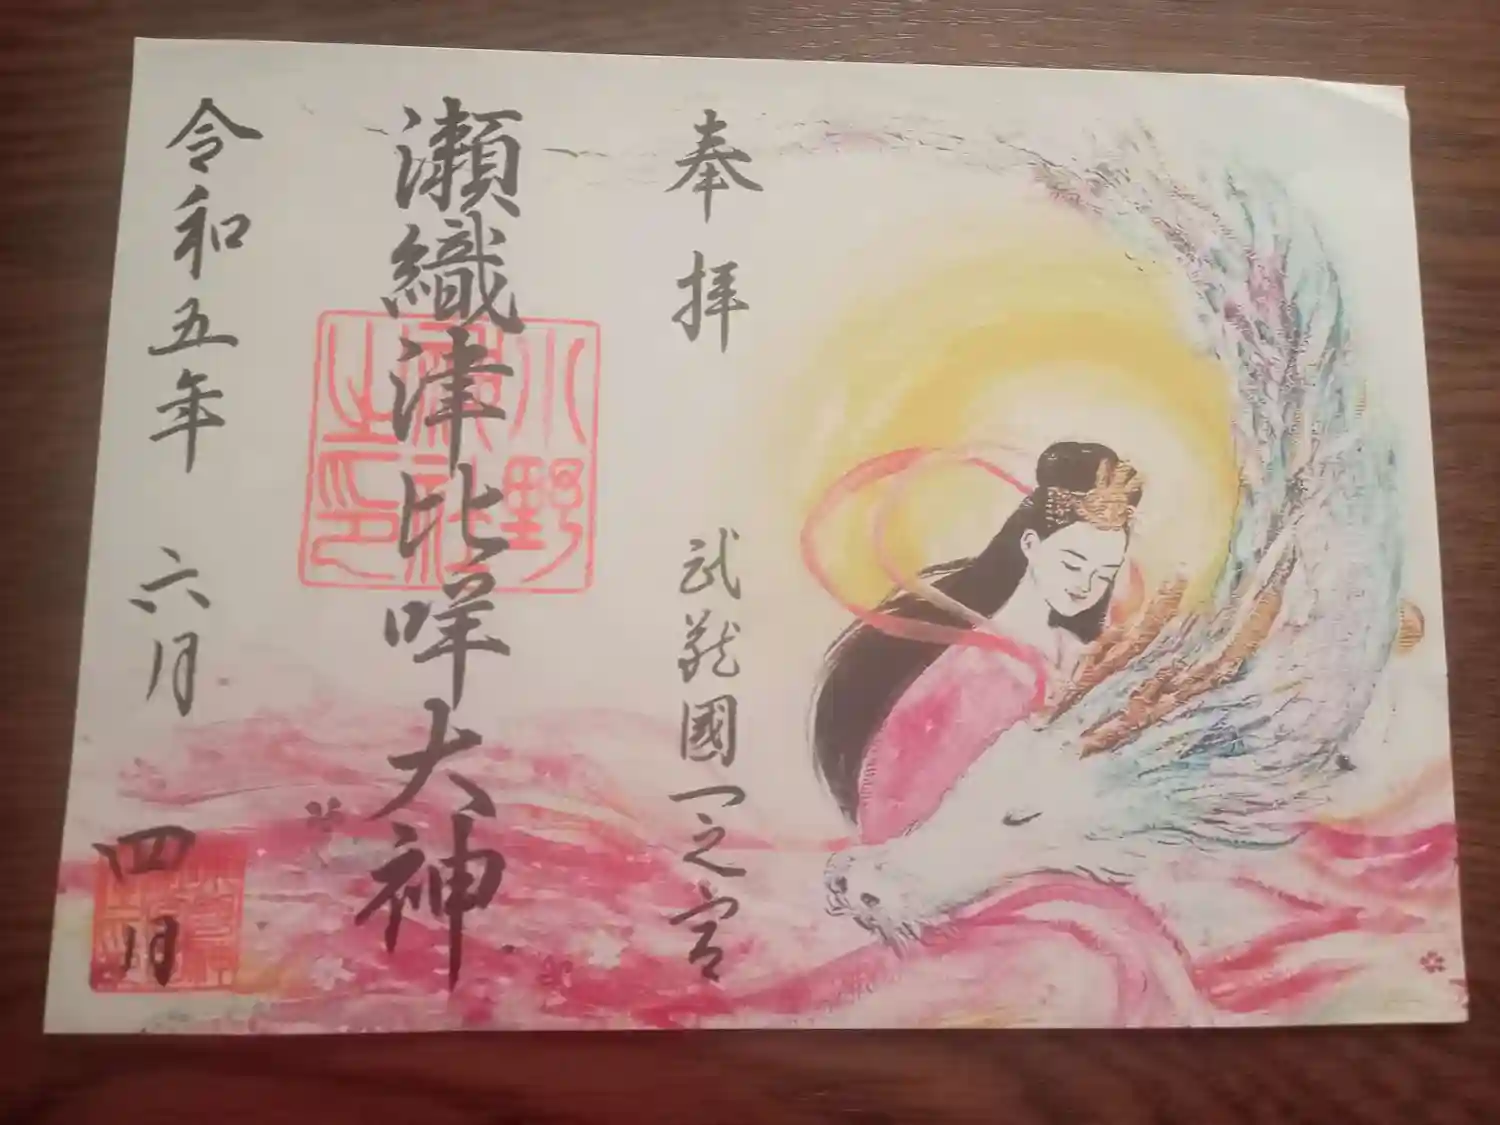 奉拝
武蔵國一之宮
瀬織津比咩大神
小野
神社
之印
令和五年 六月 四日